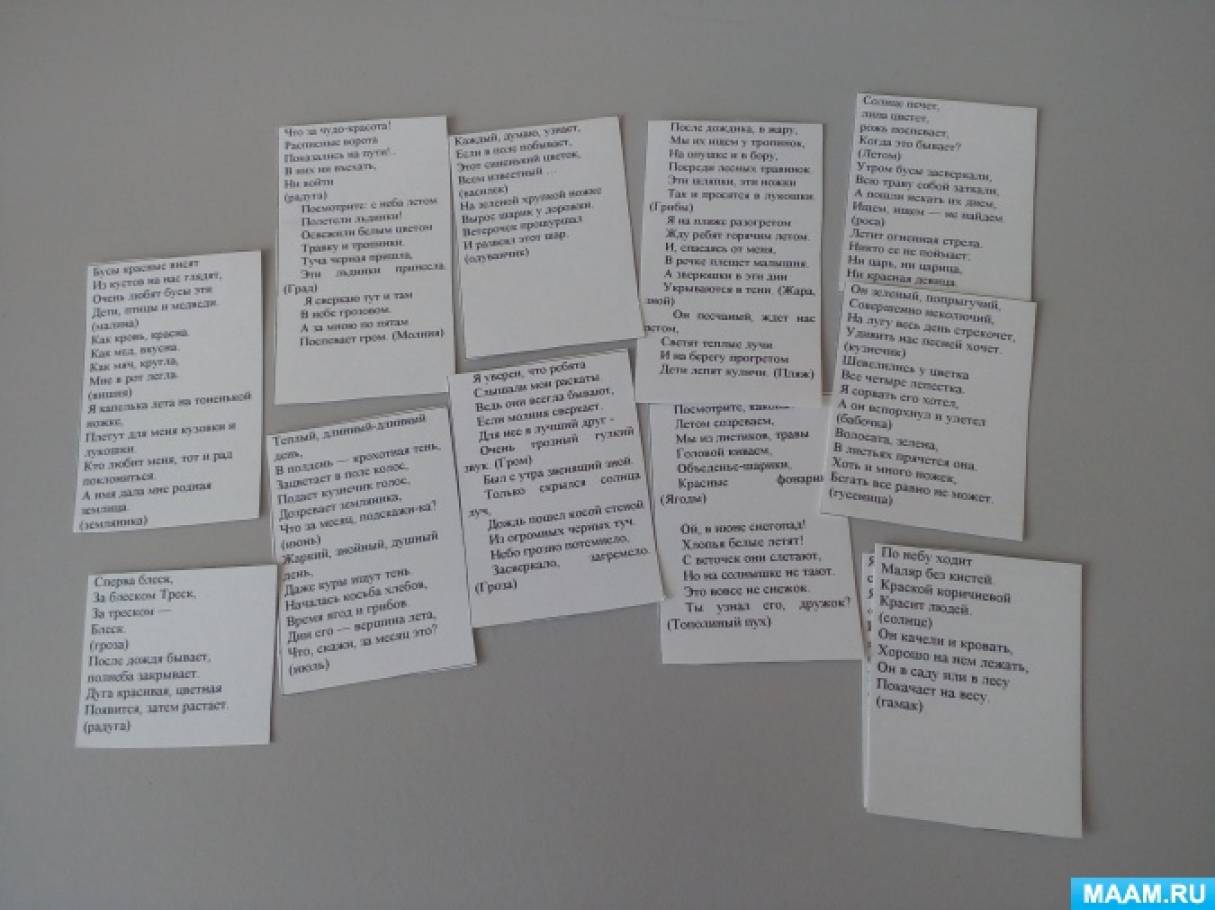 Бусы красные висят
Из кустов на нас глядят,
Очень любят бусы эти
Дети, птицы и медведи.
(малина)
Как кровь, красна.
Как мед, вкусна.
Как мяч, кругла,
Мне в рот легла.
(вишня)
Я капелька лета на тоненькой
ножке,
Плетут для меня кузовки и
лукошки.
Кто любит меня, тот и рад
поклониться.
А имя дала мне родная
землица.
(земляника)
Сперва блеск,
За блеском Треск,
За треском —
Блеск.
(гроза)
После дождя бывает,
полнеба закрывает.
Дуга красивая, цветная
Появится, затем растает.
(радуга)
Что за чудо-красота!
Расписные ворота
Показались на пути!..
В них ни въехать,
Ни войти
(радуга)
Посмотрите: с неба летом
Полетели льдинки!
Освежили белым цветом
Травку и тропинки.
Туча черная пришла,
Эти льдинки принесла.
(Град)
Я сверкаю тут и там
В небе грозовом.
А за мною по пятам
Поспевает гром. (Молния)
Теплый, длинный-длинный
день,
В полдень — крохотная тень,
Зацветает в поле колос,
Подает кузнечик голос,
Дозревает земляника,
Что за месяц, подскажи-ка?
(июнь)
Жаркий, знойный, душный
день,
Даже куры ищут тень.
Началась косьба хлебов,
Время ягод и грибов.
Дни его — вершина лета,
Что, скажи, за месяц это?
(июль)
Каждый, думаю, узнает,
Если в поле побывает,
Этот синенький цветок,
Всем известный …
(василек)
На зеленой хрупкой ножке
Вырос шарик у дорожки.
Ветерочек прошуршал
И развеял этот шар.
(одуванчик)
Я уверен, что ребята
Слышали мои раскаты
Ведь они всегда бывают,
Если молния сверкает.
Для нее я лучший друг -
Очень грозный гулкий
звук. (Гром)
Был с утра звенящий зной.
Только скрылся солнца
луч,
Дождь пошел косой стеной
Из огромных черных туч.
Небо грозно потемнело,
Засверкало, загремело.
(Гроза)
После дождика, в жару,
Мы их ищем у тропинок,
На опушке и в бору,
Посреди лесных травинок.
Эти шляпки, эти ножки
Так и просятся в лукошки.
(Грибы)
Я на пляже разогретом
Жду ребят горячим летом.
И, спасаясь от меня,
В речке плещет малышня.
А зверюшки в эти дни
Укрываются в тени. (Жара,
зной)
Он песчаный, ждет нас
летом,
Светят теплые лучи.
И на берегу прогретом
Дети лепят куличи. (Пляж)
Посмотрите,
Летом созреваем,
Мы из листиков, травы
Головой киваем,
Объеденье-шарики,
Красные фонарики
(Ягоды)
Ой, в июне снегопад!
Хлопья белые летят!
С веточек они слетают,
Но на солнышке не тают.
Это вовсе не снежок.
Ты узнал его, дружок?
(Тополиный пух)
Солнце печет,
липа цветет,
рожь поспевает,
Когда это бывает?
(Летом)
Утром бусы засверкали,
Всю траву собой заткали,
А пошли искать их днем,
Ищем, ищем — не найдем.
(роса)
Летит огненная стрела.
Никто ее не поймает:
Ни царь, ни царица,
Ни красная девица.
Он зеленый, попрыгучий,
Совершенно неколючий,
На лугу весь день стрекочет,
Удивить нас песней хочет.
(кузнечик)
Шевелились у цветка
Все четыре лепестка.
Я сорвать его хотел,
А он вспорхнул и улетел
(бабочка)
Волосата, зелена,
В листьях прячется она.
Хоть и много ножек,
Бегать все равно не может.
(гусеница)
По небу ходит
Маляр без кистей.
Краской коричневой
Красит людей.
(солнце)
Он качели и кровать,
Хорошо на нем лежать,
Он в саду или в лесу
Покачает на весу.
(гамак)
MAAM.RU